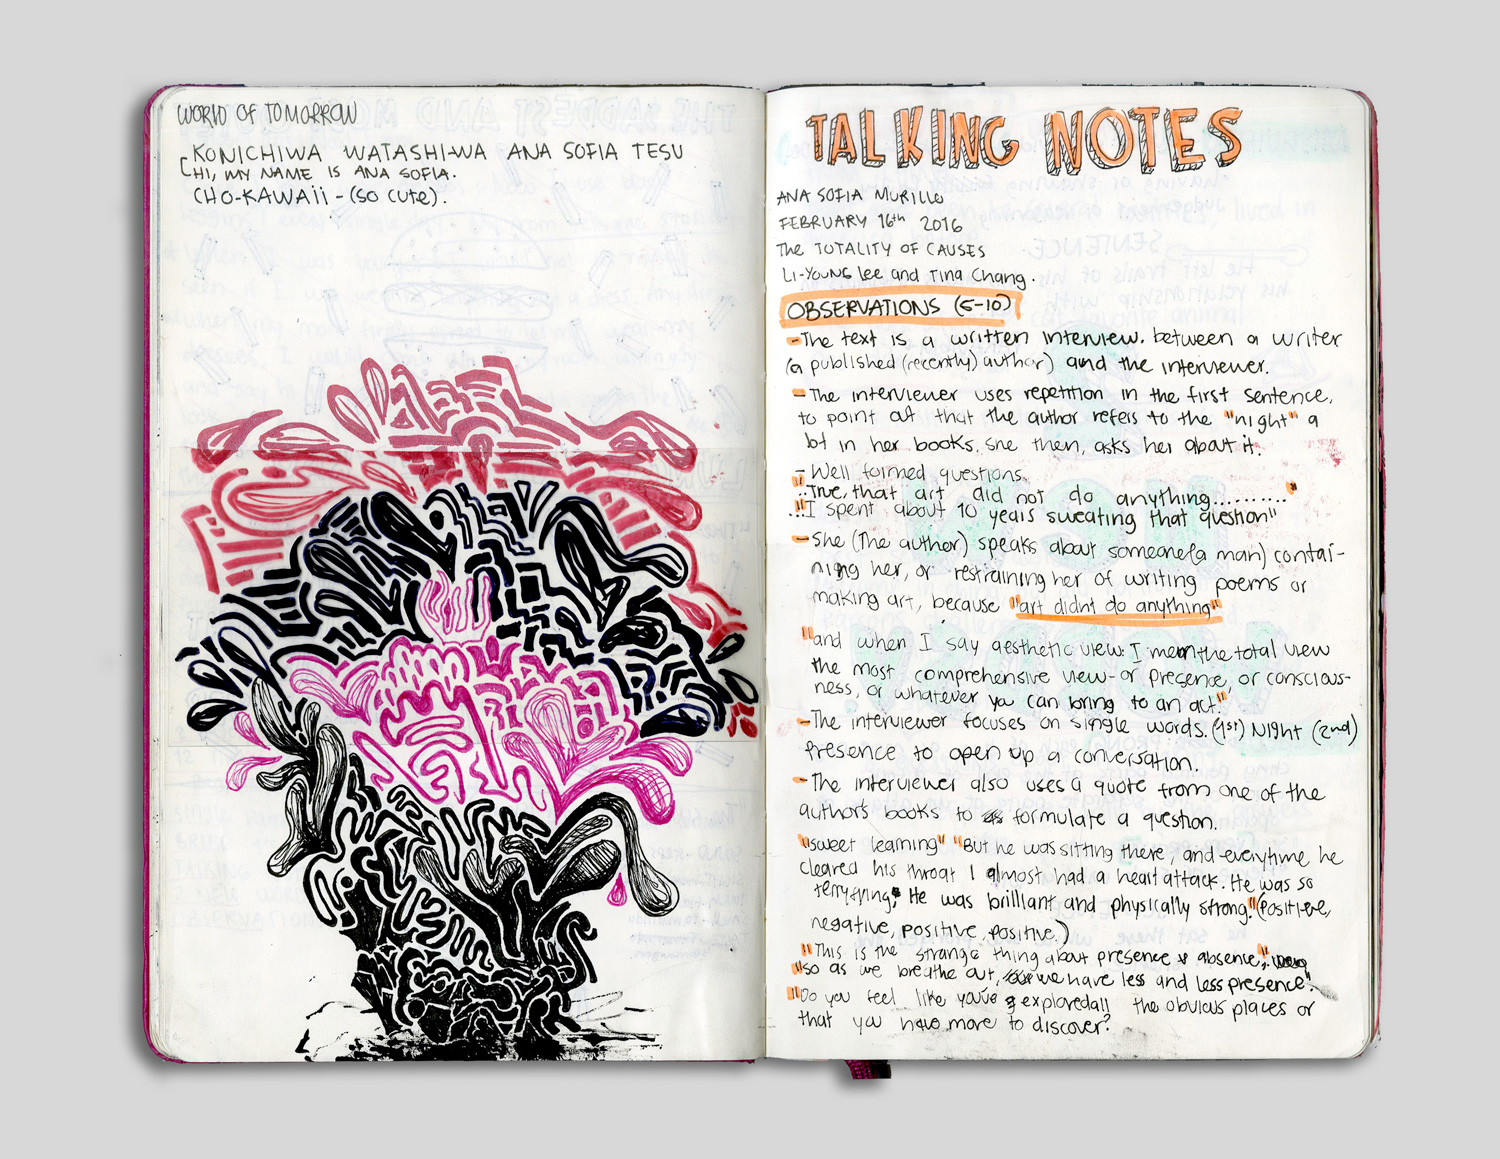 WORLD OF TOMORROW
KONICHIWA WATASHI-WA ANA SOFIA TESU
HI, MY NAME IS ANA SOFIA.
CHO-KAWAII - (SO CUTE).
TALKING NOTES
ANA SOFIA MURILLO
FEBRUARY 16th 2016
The TOTALITY OF CAUSES
LI-YOUNG Lee and Tina Chang.
OBSERVATIONS (5-10)
- The text is a written interview. between a writer
(a published (recently) author) and the interviewer.
- The interviewer uses repetition in the first sentence,
to point out that the author refers to the "night" a
lot in her books. She then, asks her about it.
- Well formed questions.
"...True, that art did not do anything.........."
..."I spent about 10 years sweating that question"
- She (The author) speaks about someone (a man) contai-
ning her, or restraining her of writing poems or
making art, because "art didnt do anything"
"and when I say aesthetic view: I mean the total view
the most comprehensive view- or presence, or conscious-
ness, or whatever you can bring to an act."
- The interviewer focuses on single words. (1st) Night (2nd)
presence to open up a conversation.
- The interviewer also uses a quote from one of the
author's books to formulate a question.
"sweet learning" "But he was sitting there, and everytime he
cleared his throat I almost had a heart attack. He was so
terryfying. He was brilliant and physically strong." (positive,
negative, positive, positive.)
"This is the strange thing about presence & absence,"
"so as we breathe out, we have less and less presence".
"Do you feel like you've explored all the obvious places or
that you have more to discover?